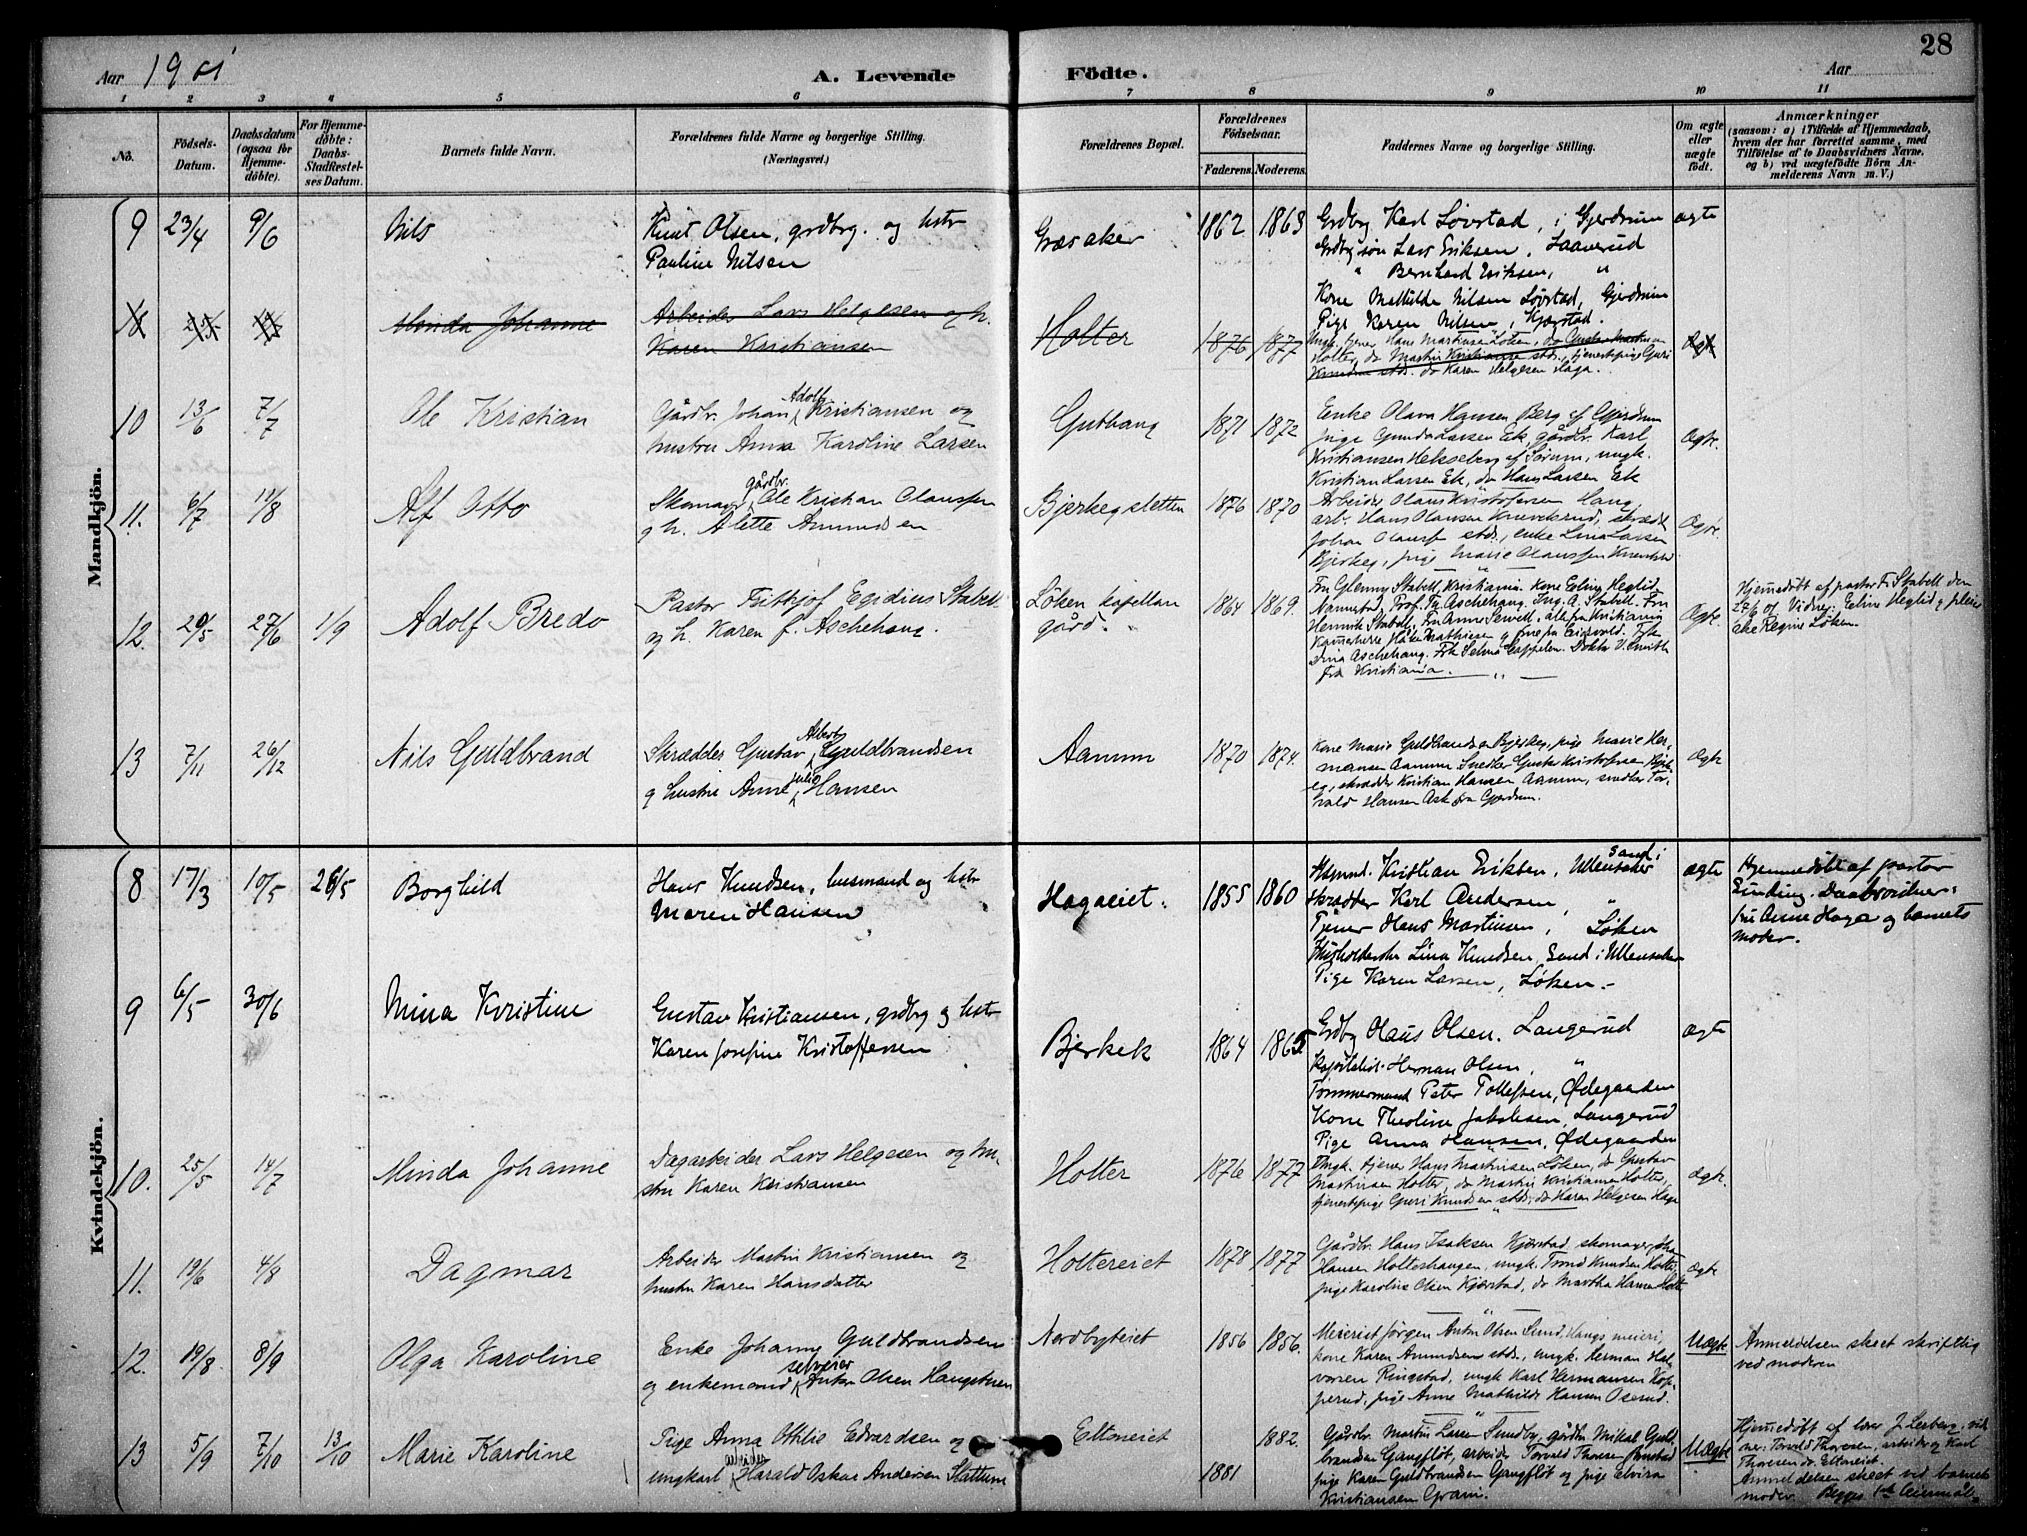 28
Aar 1901
A. Levende Födte.
Aar
1 2 3 4 5 6 7 8 9 10 11
No.
Födsels-Datum.
Daabsdatum (ogsaa for Hjemmedöbte).
For Hjemmedöbte: Daabs-Stadfestelses Datum.
Barnets fulde Navn.
Forældrenes fulde Navne og borgerlige Stilling.
(Næringsvei.)
Forældrenes Bopæl.
Forældrenes Födselsaar.
Faderens. Moderens.
Faddernes Navne og borgerlige Stilling.
Om ægte eller uægte födt.
Anmærkninger
(saasom: a) i Tilfælde af Hjemmedaab, hvem der har forrettet samme, med Tilföielse af to Daabsvidners Navne. og b) ved uægtefödte Börn Anmelderens Navn m. V.)
Mandkjön.
9 23/4 9/6 Nils
Knut Olsen, grdbrg. og hstr
Pauline Nilsen
Græsaker 1862 1863
Grdbrg Karl Løvstad, i Gjerdrum
Grdbrg søn Lars Eriksen, Laanerud
" Bernhard Eriksen, "
Kone Mathilde Nilsen Løvstad, Gjerdrum
Pige Karen Nilsen, Kjærstad.
ægte
Minda Johanne
Arbeider Lars Helgesen og h.
Karen Kristiansen
Holter 1876 1877
Ungk. tjener Hans Martinsen Løken, do Gustav Martinsen
Holter, do Martin Kristiansen stds., tjenestepige Guri
Knudsen stds. do Karen Helgesen Haga.
10 13/6 7/7 Ole Kristian
Gårdbr. Johan Adolf Kristiansen og
hustru Anna Karoline Larsen
Guthaug 1871 1872
Enke Olava Hansen Berg af Gjerdrum
pige Gunda Larsen Ek, gårdbr. Karl
Kristiansen Hekseberg af Sørum, ungk.
Kristian Larsen Ek, do Hans Larsen Ek
Ægte.
11. 6/7 11/8 Alf Otto
Skomager gårdbr. Ole Kristian Olaussen
og h. Alette Amundsen
Bjerkegsletten 1876 1870
Arbeider Olaus Kristofersen Haug,
arb. Hans Olausen
Johan Olaussen stds., enke Lina Larsen
Bjerkeg, pige Marie Olaussen
Ægte.
12. 20/5 27/6 1/9 Adolf Bredo
Pastor Frithjof Egidius Stabell
og h. Karen f. Aschehoug.
Løken kapellan
gård. 1864 1869.
Fru Glenny Stabell, Kristiania. Kone Eline Heglid
Nannestad, Prof. Th. Aschehoug. Ing. A. Stabell. Fru
Henrik Stabell, Fru Anne alle fra Kristiania
Mathiesen og frue fra Eidsvold. Frk
Dina Aschehoug. Frk Selma Cappelen. Doktor V. Smith
fra Kristiania.
Ægte.
Hjemmedøbt af pastor F. Stabell den
27/6 01. Vidner: Eline Heglid og pleier
ske Regine Løken.
13 7/11 26/12 Nils Guldbrand
Skrædder Gustav Albert Guldbrandsen
og hustru Anne Julie Hansen
Aamum 1870 1874.
Kone Marie Guldbrandsen Bjerkeg, pige Marie Her-
mansen Aamum Snedker Gustav Kristofersen Bjerk-
eg, skrædder Kristian Hansen Aamum, snedker Tor-
vald Hansen Ask fra Gjerdrum.
Ægte
Kvindekjön.
8 17/3 10/5 26/5 Borghild
Hans Knudsen, husmand og hstr
Maren Hansen
Hagaeiet. 1855 1860
Husmd. Kristian Eriksen, Sand i Ullensaker
Skrædder Karl Andersen, "
Tjener Hans Martinsen, Løken
Husholderske Lina Knudsen, Sand i Ullensaker
Pige Karen Larsen, Løken.
ægte
Hjemmedøbt af pastor
Sinding. Daabsvidner:
fru Anne Haga og barnets
moder.
9 6/5 30/6 Mina Kristine
Gustav Kristiansen, grdbrg og hstr
Karen Josefine Kristoffersen
Bjerkek 1864 1865
Grdbrg Olaus Olsen. Langerud
Herman Olsen, "
Tømmermand Peter Tollefsen, Ødegaarden
Kone Theoline Jakobsen, Langerud
Pige Anna Hansen, Ødegaarden
ægte
10. 25/5 14/7 Minda Johanne
Dagarbeider Lars Helgesen og hu-
stru Karen Kristiansen
Holter 1876 1877
Ungk. tjener Hans Martinsen Løken, do Gustav
Martinsen Holter, do Martin Kristiansen Holter,
tjenestepige Guri Knudsen stds, do Karen Helgesen Haga
Ægte.
11. 19/6 4/8 Dagmar
Arbeider Martin Kristiansen og
hustru Karen Hansdatter
Holtereiet 1878 1877
Gårdbr. Hans Isaksen Kjærstad, skomager
Hansen Holterhaugen, ungk. Trond Knudsen Holter,
pige Karoline Olsen Kjærstad, do Martha Hansen Holter
Ægte
12. 19/8. 8/9 Olga Karoline
Enke Johanne Guldbrandsen
og enkemand selveier Anton Olsen Haugstuen
Nordbyteiet 1856 1856.
Meierist Jørgen Anton Olsen Sund, Haugs meieri,
kone Karen Amundsen stds., ungk. Herman Hal-
vorsen Ringstad, ungk Karl Hermansen Kop-
perud, pige Anne Mathilde Hansen Oserud.
Uægte
Anmeldelsen skeet skriftlig
ved moderen
13 5/9 7/10 13/10 Marie Karoline
Pige Anna Othilie Edvardsen og
ungkarl arbeider Harald Oskar Andersen Slattum
Eltoneiet 1881 1882.
Gårdbr. Martin Larsen Sundby, gårdbr Mikal Guld-
brandsen Gangfløt, arbeider Torvald Thoresen
pige Karen Guldbrandsen Gangfløt og pige Elvira
Kristiansen Grani.
Uægte
Hjemmedøbt af lærer J. Lerberg, vid-
ner: Torvald Thoresen, arbeider og Karl
Thoresen do Eltoneiet.
Anmeldelsen skeet ved barnets
moder. Begges 1ste Leiermål.